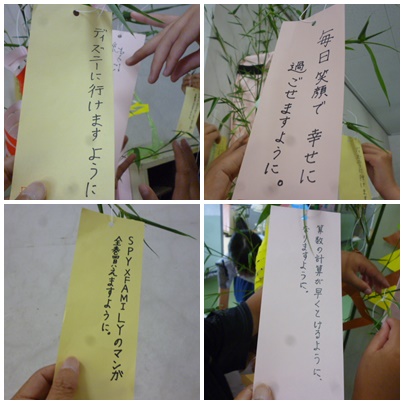 ディズニーに行けますように
毎日笑顔で 幸せに
過ごせますように。
SPY×FAMILYのマンガ
全巻買えますように。
算数の計算が早くとけるように、
なりますように。